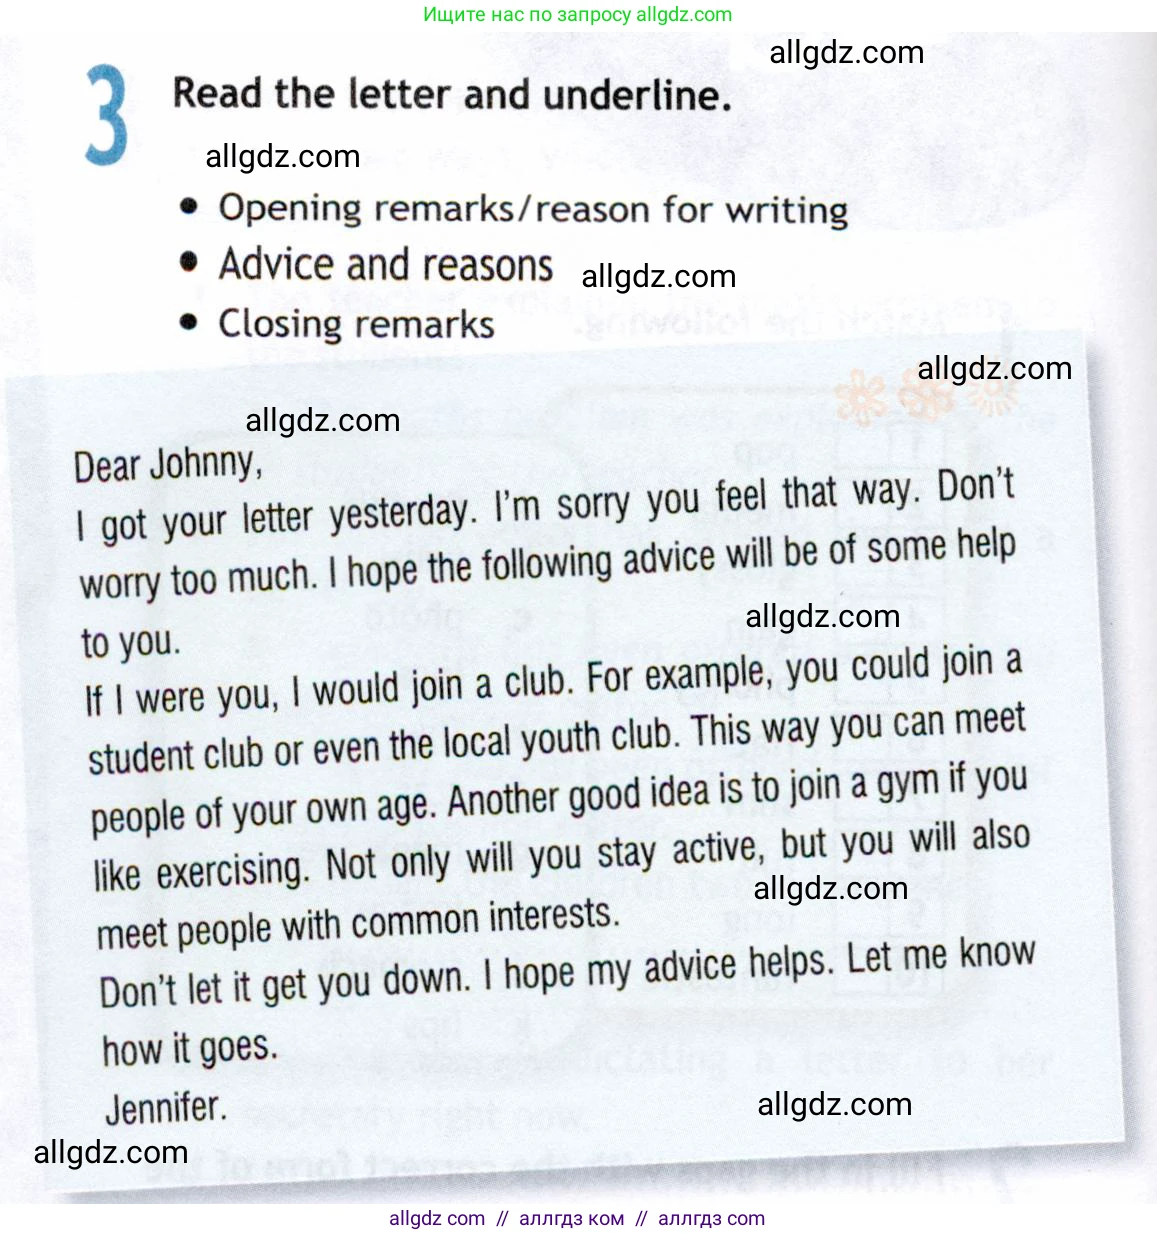 Ищите нас по запросу allgdz.com
allgdz.com
3 Read the letter and underline.
allgdz.com
• Opening remarks/reason for writing
• Advice and reasons
allgdz.com
• Closing remarks
allgdz.com
allgdz.com
Dear Johnny,
I got your letter yesterday. I'm sorry you feel that way. Don't
worry too much. I hope the following advice will be of some help
allgdz.com
to you.
If I were you, I would join a club. For example, you could join a
student club or even the local youth club. This way you can meet
people of your own age. Another good idea is to join a gym if you
like exercising. Not only will you stay active, but you will also
allgdz.com
meet people with common interests.
Don't let it get you down. I hope my advice helps. Let me know
how it goes.
Jennifer.
allgdz.com
allgdz.com
allgdz com // аллгдз ком // аллгдз com